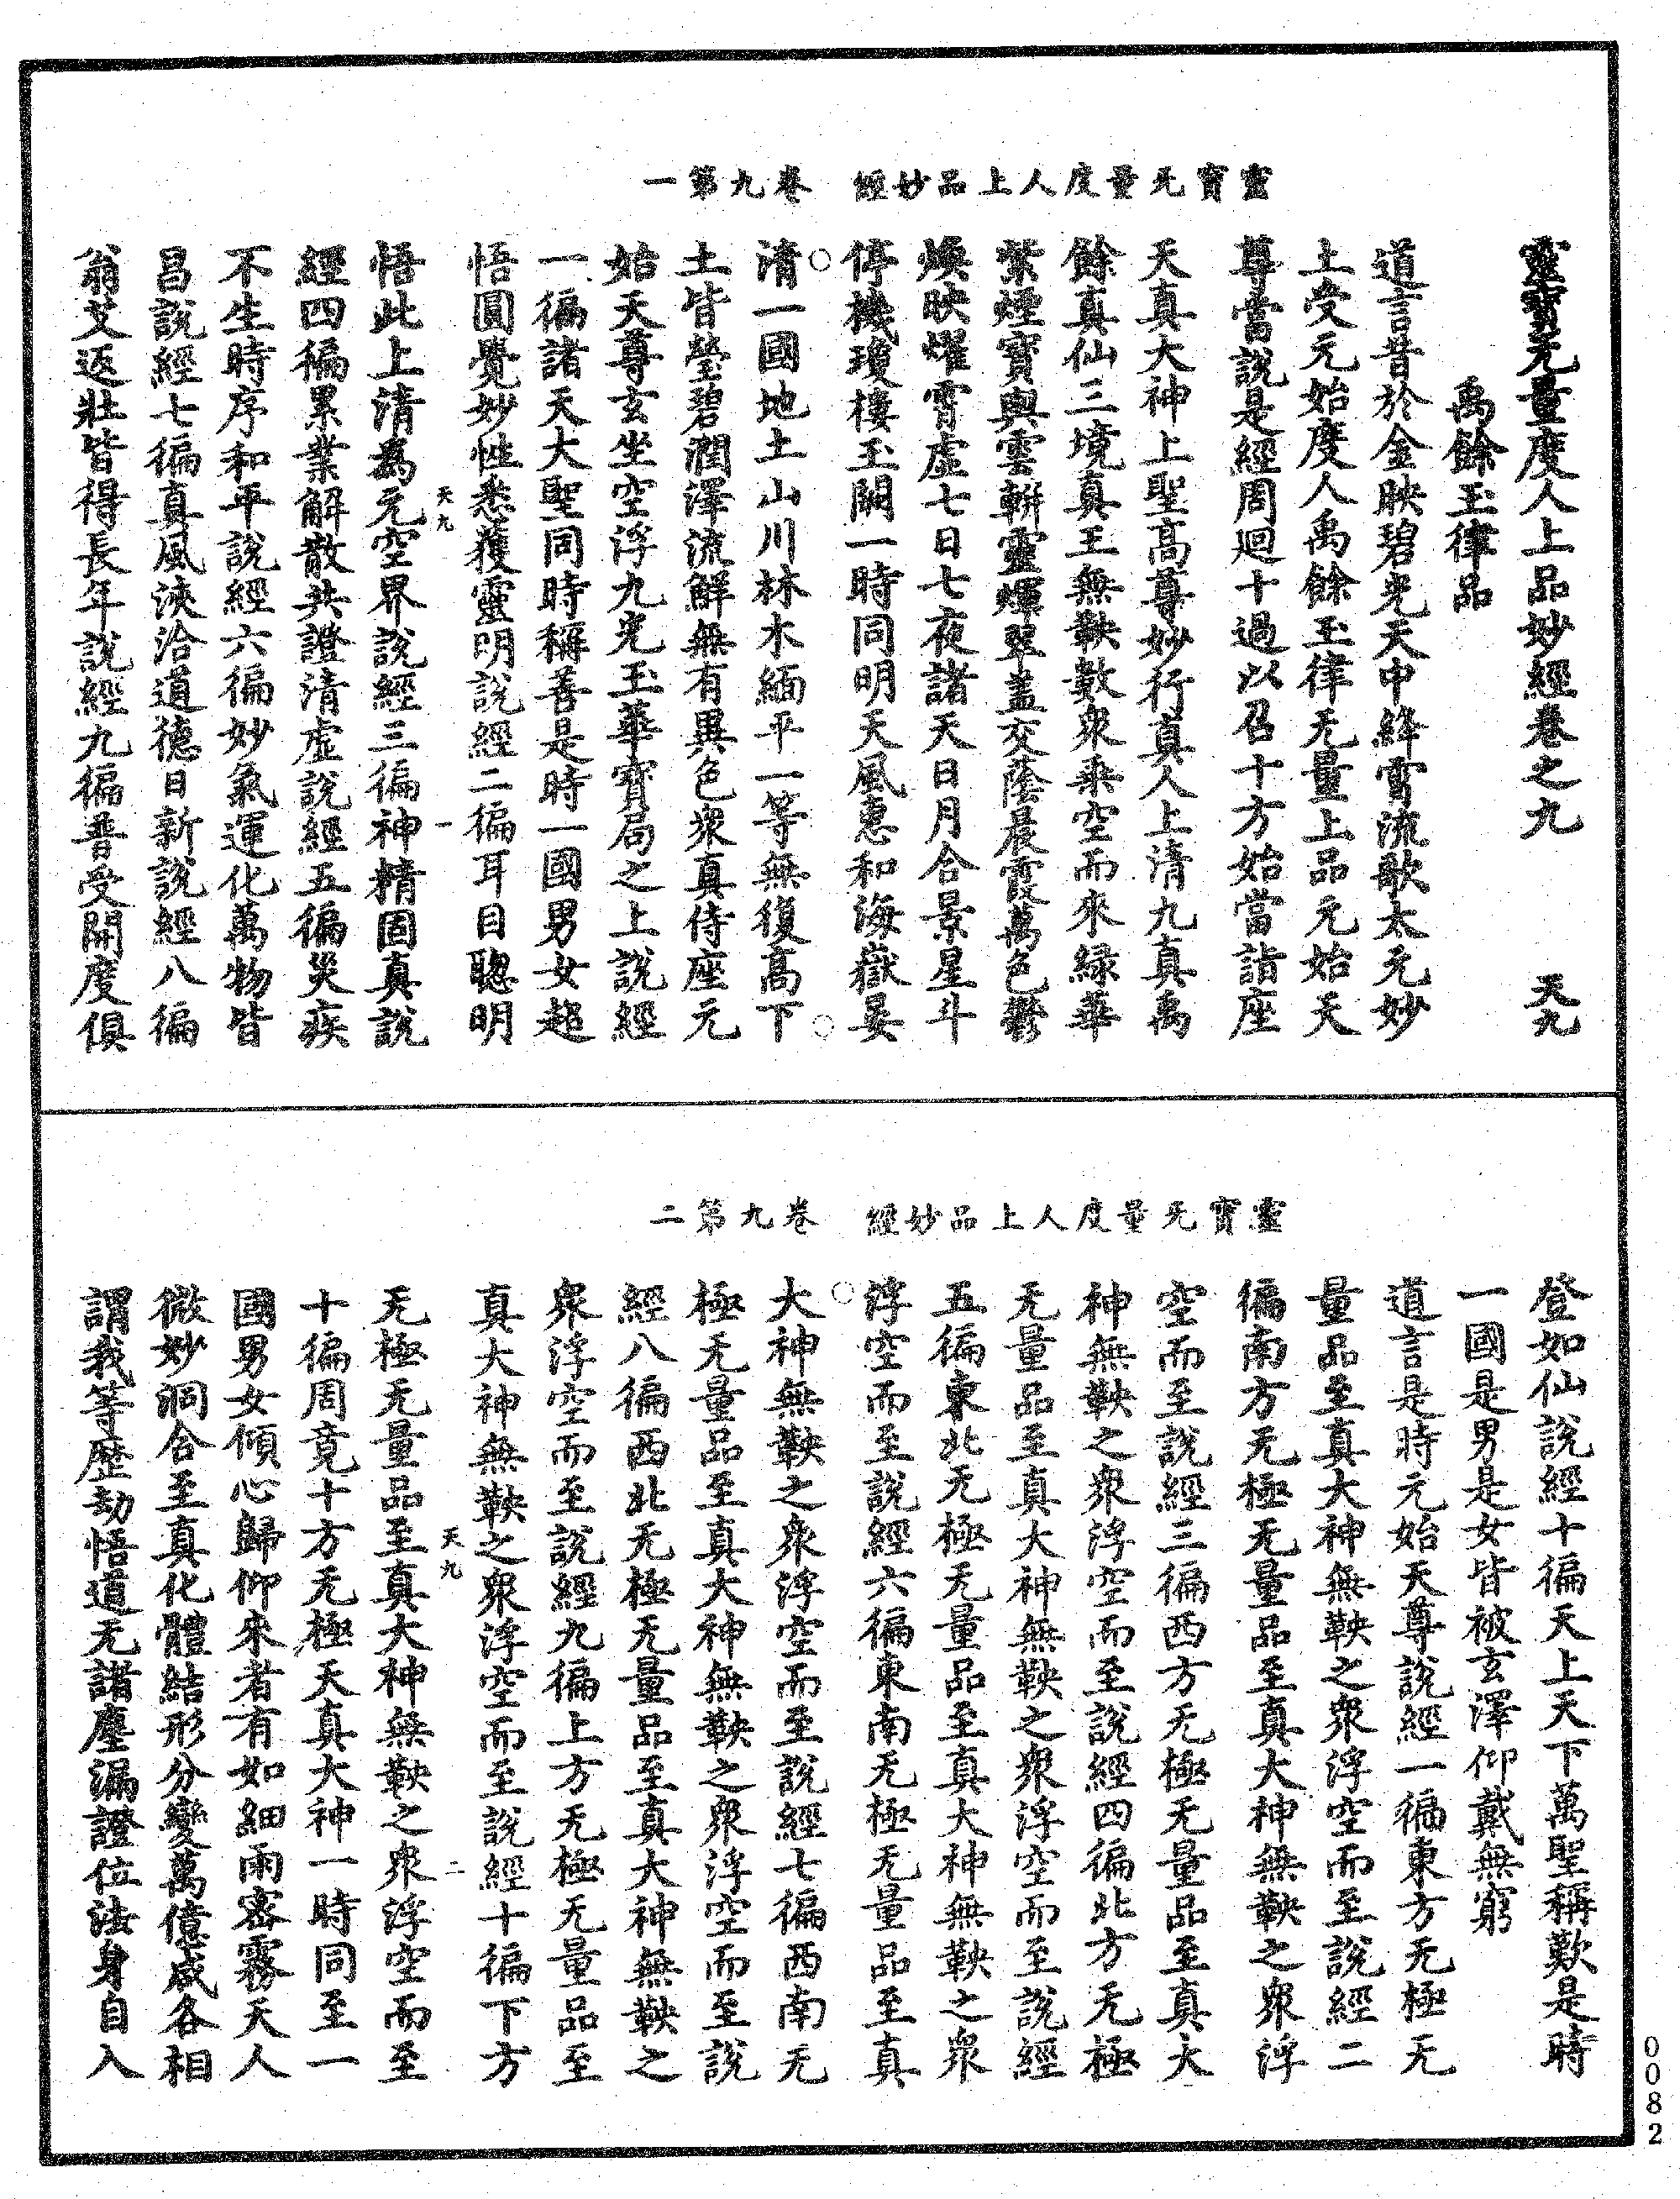 靈寶无量度人上品妙經　卷九第一
靈寶无量度人上品妙經卷之九　天九
禹餘玉律品
道言昔於金映碧光天中絳霄流歌太元妙
土受元始度人禹餘玉律无量上品元始天
尊當說是經周迴十過以召十方始當詣座
天真大神上聖高尊妙行真人上清九真禹
餘真仙三境真王無鞅數眾乘空而來緑華
紫煙寶輿雲軿靈煇翠盖交蔭晨霞萬色鬱
煥映燿霄虛七日七夜諸天日月合景星斗
停機瓊樓玉闕一時同明天風惠和海嶽晏
清一國地土山川林木緬平一等無復高下
土皆瑩碧潤澤流鮮無有異色眾真侍座元
始天尊玄坐空浮九光玉華寶局之上說經
一徧諸天大聖同時稱善是時一國男女超
悟圓覺妙性悉獲靈明說經二徧耳目聰明
天九　一
悟此上清為元空界說經三徧神精固真說
經四徧累業解散共證清虛說經五徧災疾
不生時序和平說經六徧妙氣運化萬物皆
昌說經七徧真風浹洽道德日新說經八徧
翁艾返壯皆得長年說經九徧普受開度俱
靈寶无量度人上品妙經　卷九第二
登如仙說經十徧天上天下萬聖稱歎是時
一國是男是女皆被玄澤仰戴無窮
道言是時元始天尊說經一徧東方无極无
量品至真大神無鞅之眾浮空而至說經二
徧南方无極无量品至真大神無鞅之眾浮
空而至說經三徧西方无極无量品至真大
神無鞅之眾浮空而至說經四徧北方无極
无量品至真大神無鞅之眾浮空而至說經
五徧東北无極无量品至真大神無鞅之眾
浮空而至說經六徧東南无極无量品至真
大神無鞅之眾浮空而至說經七徧西南无
極无量品至真大神無鞅之眾浮空而至說
經八徧西北无極无量品至真大神無鞅之
眾浮空而至說經九徧上方无極无量品至
真大神無鞅之眾浮空而至說經十徧下方
天九　二
无極无量品至真大神無鞅之眾浮空而至
十徧周竟十方无極天真大神一時同至一
國男女傾心歸仰來者有如細雨密霧天人
微妙洞合至真化體結形分變萬億咸各相
謂我等歷劫悟道无諸塵漏證位法身自入
0082